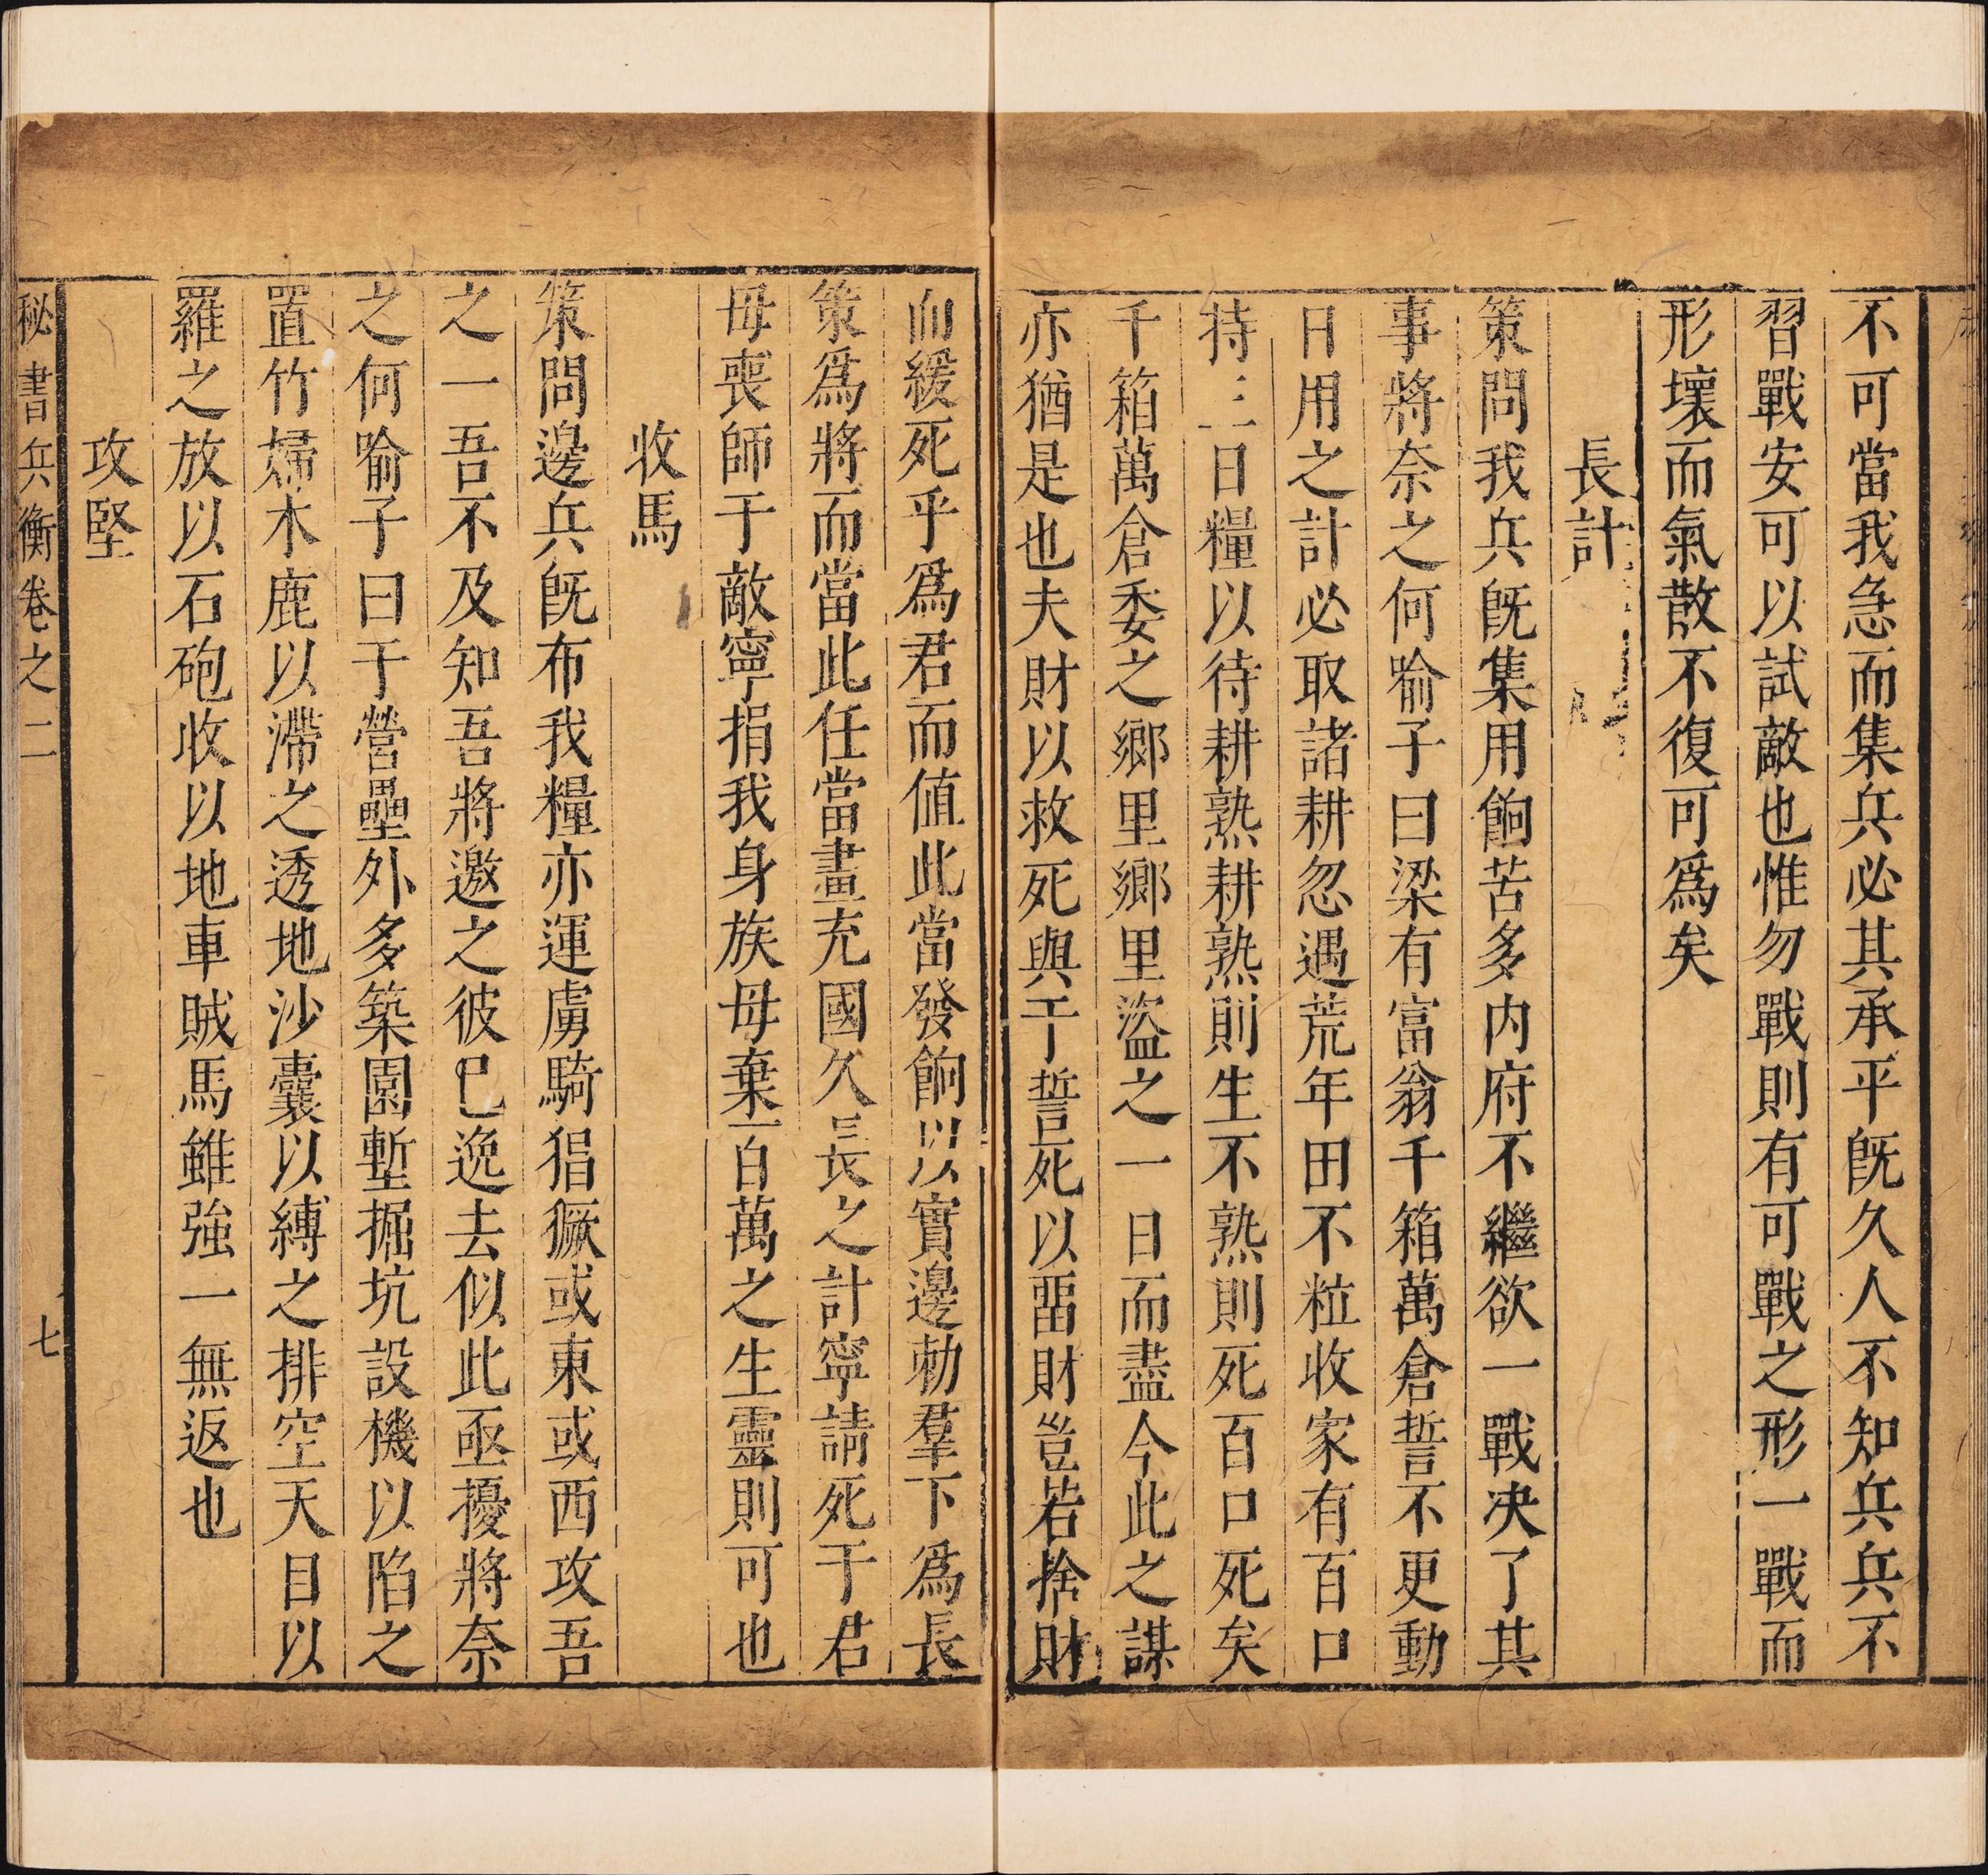 不可當我急而集兵必其承平既久人不知兵兵不
習戰安可以試敵也惟勿戰則有可戰之形一戰而
形壞而氣散不復可爲矣
長計
策問我兵既集用餉苦多内府不繼欲一戰决了其
事將奈之何喻子曰梁有富翁千箱萬倉誓不更動
日用之計必取諸耕忽遇荒年田不粒收家有百口
持三日糧以待耕熟耕熟則生不熟則死百口死矣
千箱萬倉委之鄉里鄉里盜之一日而盡今此之謀
亦猶是也夫財以救死與于誓死以畱財豈若捨財
而緩死乎爲君而值此當發餉以實邊勅羣下爲長
策爲將而當此任當畫充國久長之計寧請死于君
毋喪師于敵寧捐我身族毋棄百萬之生靈則可也
收馬
策問邊兵既布我糧亦運虜騎猖獗或東或西攻吾
之一吾不及知吾將邀之彼已逸去似此亟擾將奈
之何喻子曰于營壘外多築園塹掘坑設機以陷之
置竹婦木鹿以滯之透地沙囊以縛之排空天目以
羅之放以石砲收以地車賊馬雖強一無返也
攻堅
秘書兵衡卷之二
七